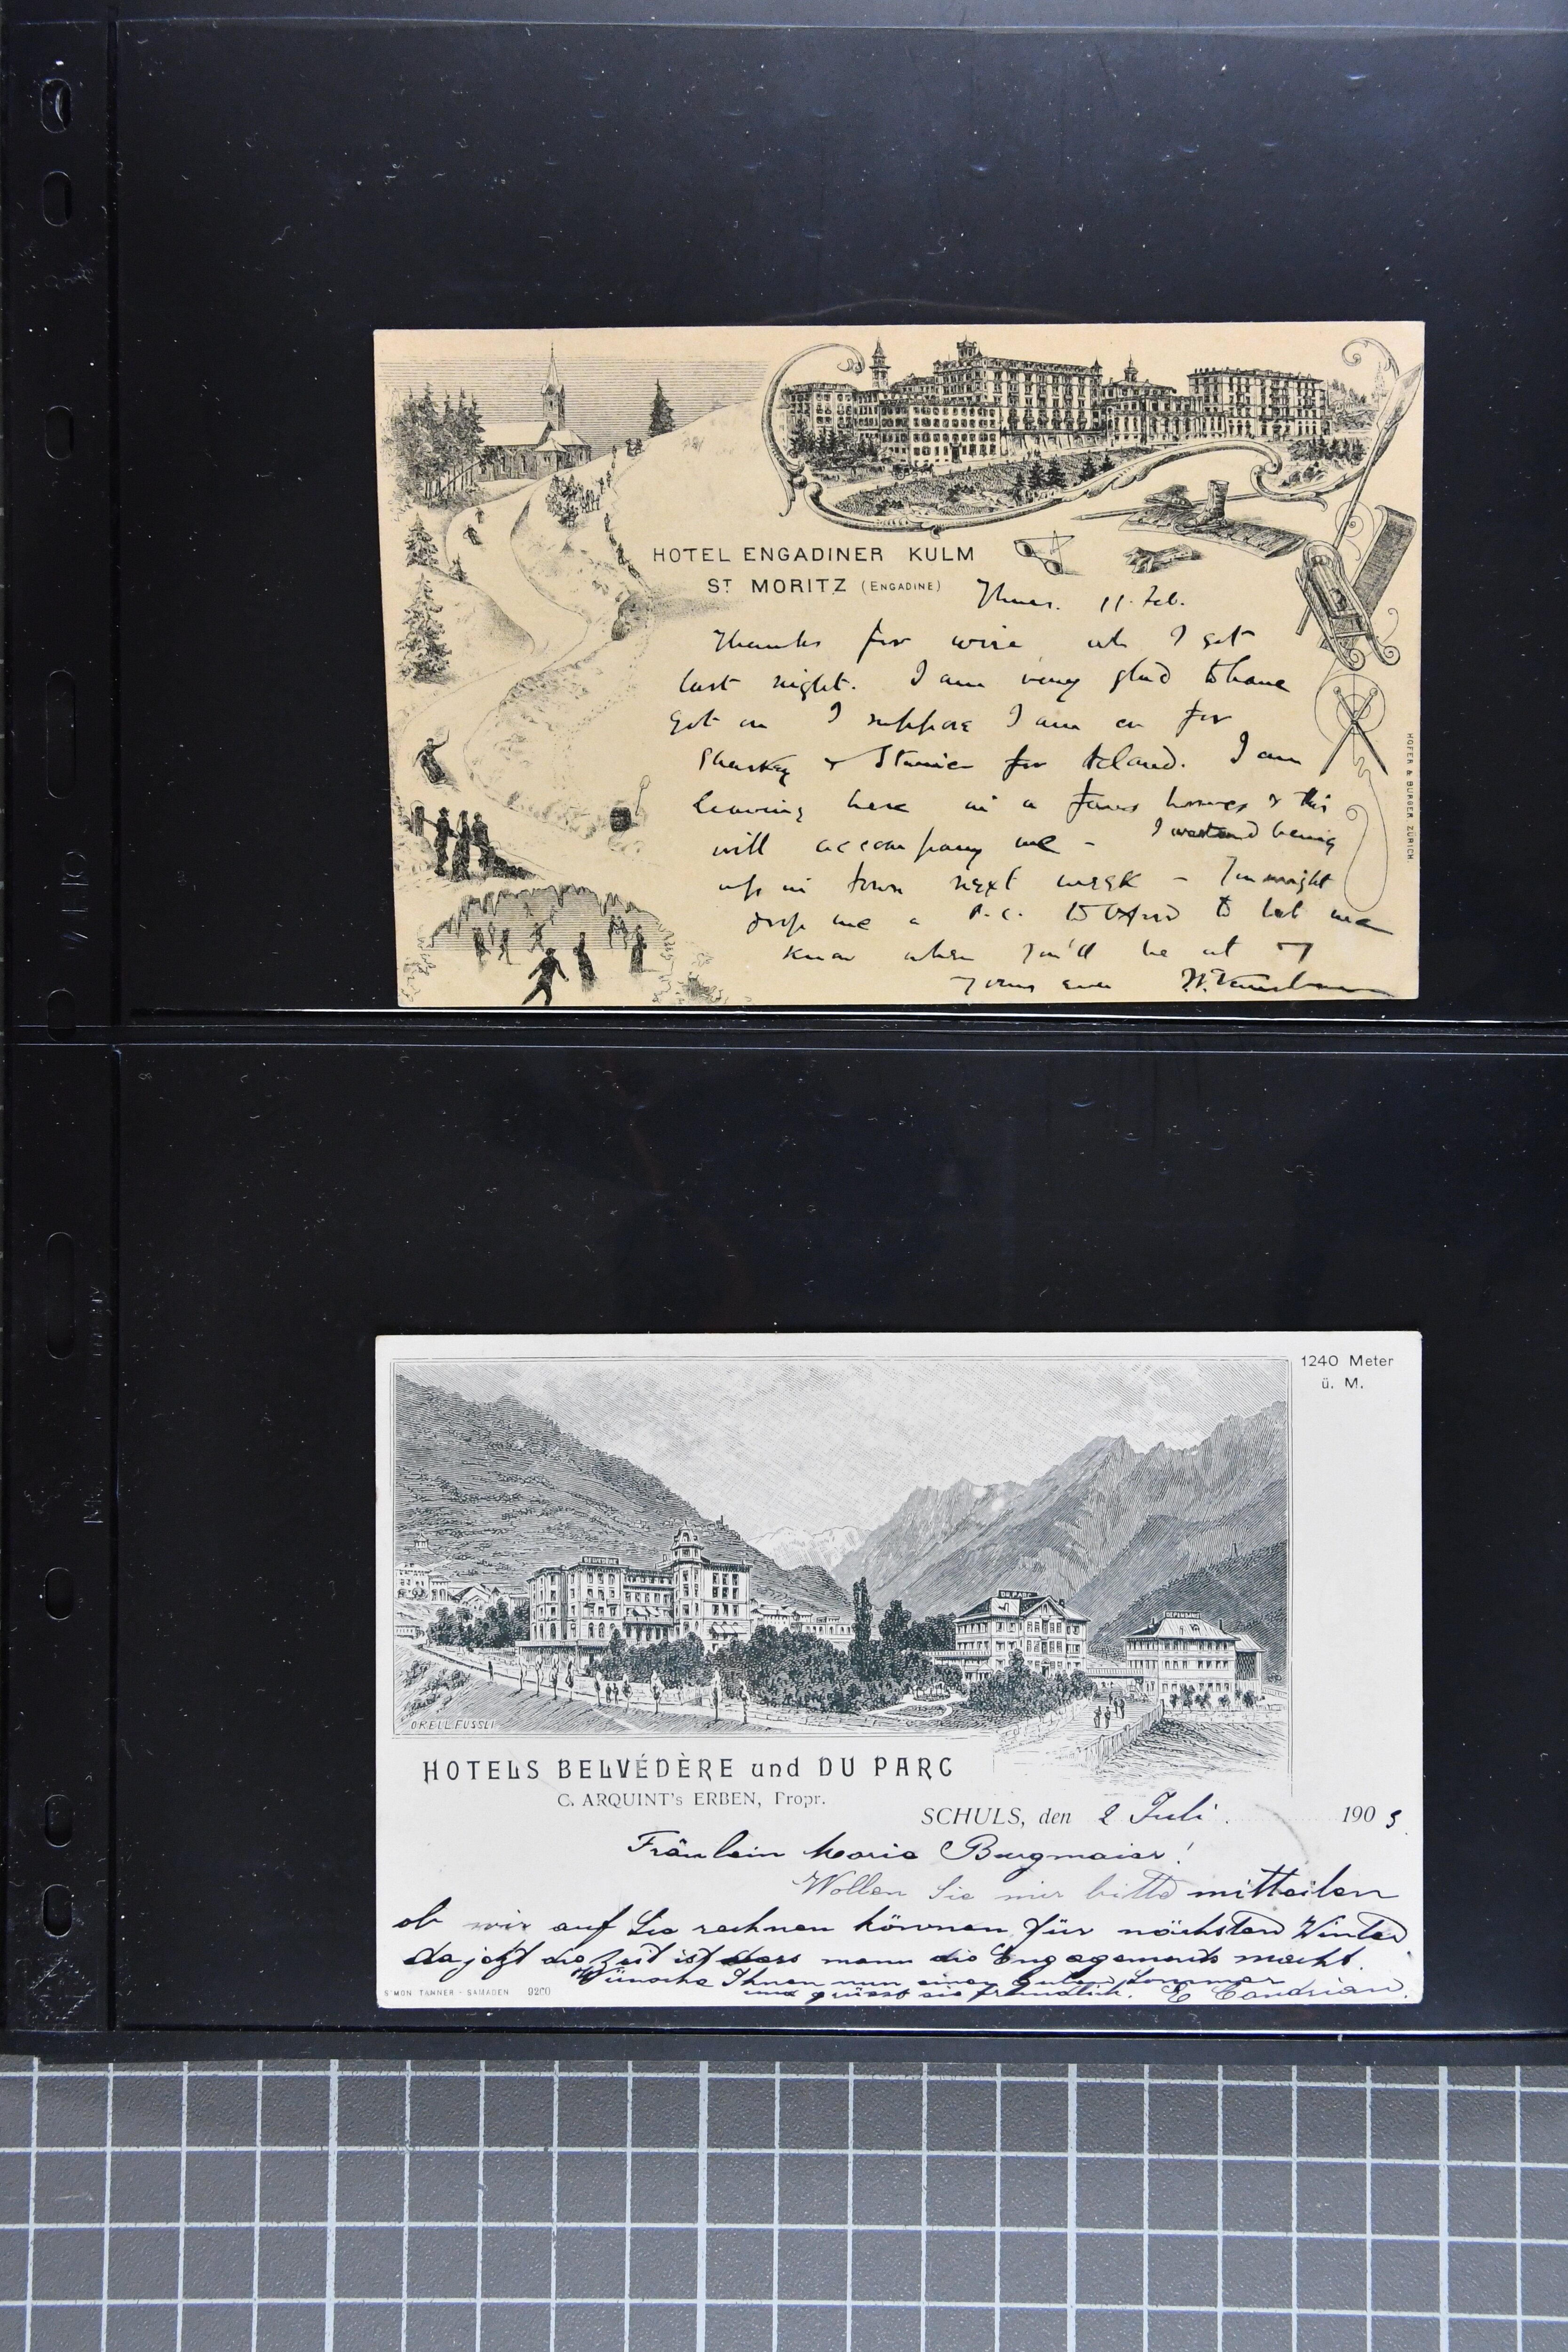 HOTEL ENGADINER KULM
ST MORITZ (ENGADINE)
Thurs. 11. Feb.
Thanks for wire wh I got
last night. I am very glad to have
got on I suppose I am on for
Sharkey & for Acland. I am
leaving here in a few hours & this
will accompany me - being
up in town next week - You might
drop me a P.C. to Oxford to let me
know when you'll be at
yours ever
HOFER & BURGER, ZÜRICH
1240 Meter
ü. M.
BELVÉDÈRE
DU PARC
DEPENDANCE
ORELL FUSSLI
HOTELS BELVÉDÈRE und DU PARC
C. ARQUINT's ERBEN, Propr.
SCHULS, den 2 Juli. 1903
Fräulein Maria Burgmaier!
Wollen Sie mir bitte mitteilen
ob wir auf Sie rechnen können für nächsten Winter
da jetzt die Zeit ist dass mann die Engagements macht.
Wünsche Ihnen nun einen guten Sommer
und grüsst sie freundlich. E Candrian.
SIMON TANNER - SAMADEN 9200